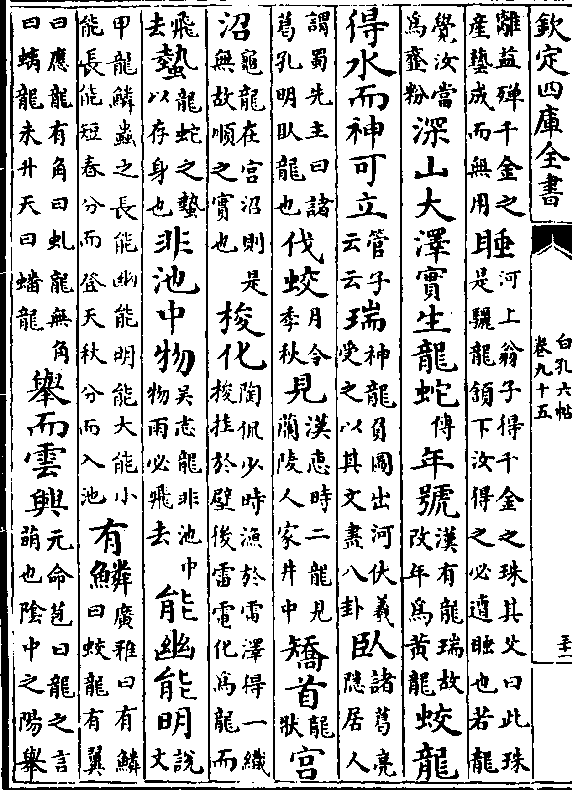 欽定四庫全書
白孔六帖
卷九十五
離益殫千金之
産藝成而無用
睡
河上翁子得千金之珠其父曰此珠
是驪龍頷下汝得之必遭睡也若龍
覺汝當
為虀粉
深山大澤實生龍蛇
傳
年號
漢有龍瑞故
改年為黄龍
蛟龍
得水而神可立
管子
云云
瑞
神龍負圖出河伏羲
受之以其文畫八卦
臥
諸葛亮
隠居人
謂蜀先主曰諸
葛孔明臥龍也
伐蛟
月令
季秋
見
漢惠時二龍見
蘭陵人家井中
矯首
龍
狀
宫
沼
龜龍在宫沼則是
無故順之實也
梭化
陶侃少時漁於雷澤得一織
梭挂於壁後雷電化為龍而
飛
去
蟄
龍蛇之蟄
以存身也
非池中物
吳志龍非池中
物雨必飛去
能幽能明
說
文
甲龍鱗蟲之長能幽能明能大能小
能長能短春分而登天秋分而入池
有鱗
廣雅曰有鱗
曰蛟龍有翼
曰應龍有角曰虬龍無角
曰螭龍未升天曰蟠龍
舉而雲興
元命苞曰龍之言
萌也隂中之陽舉